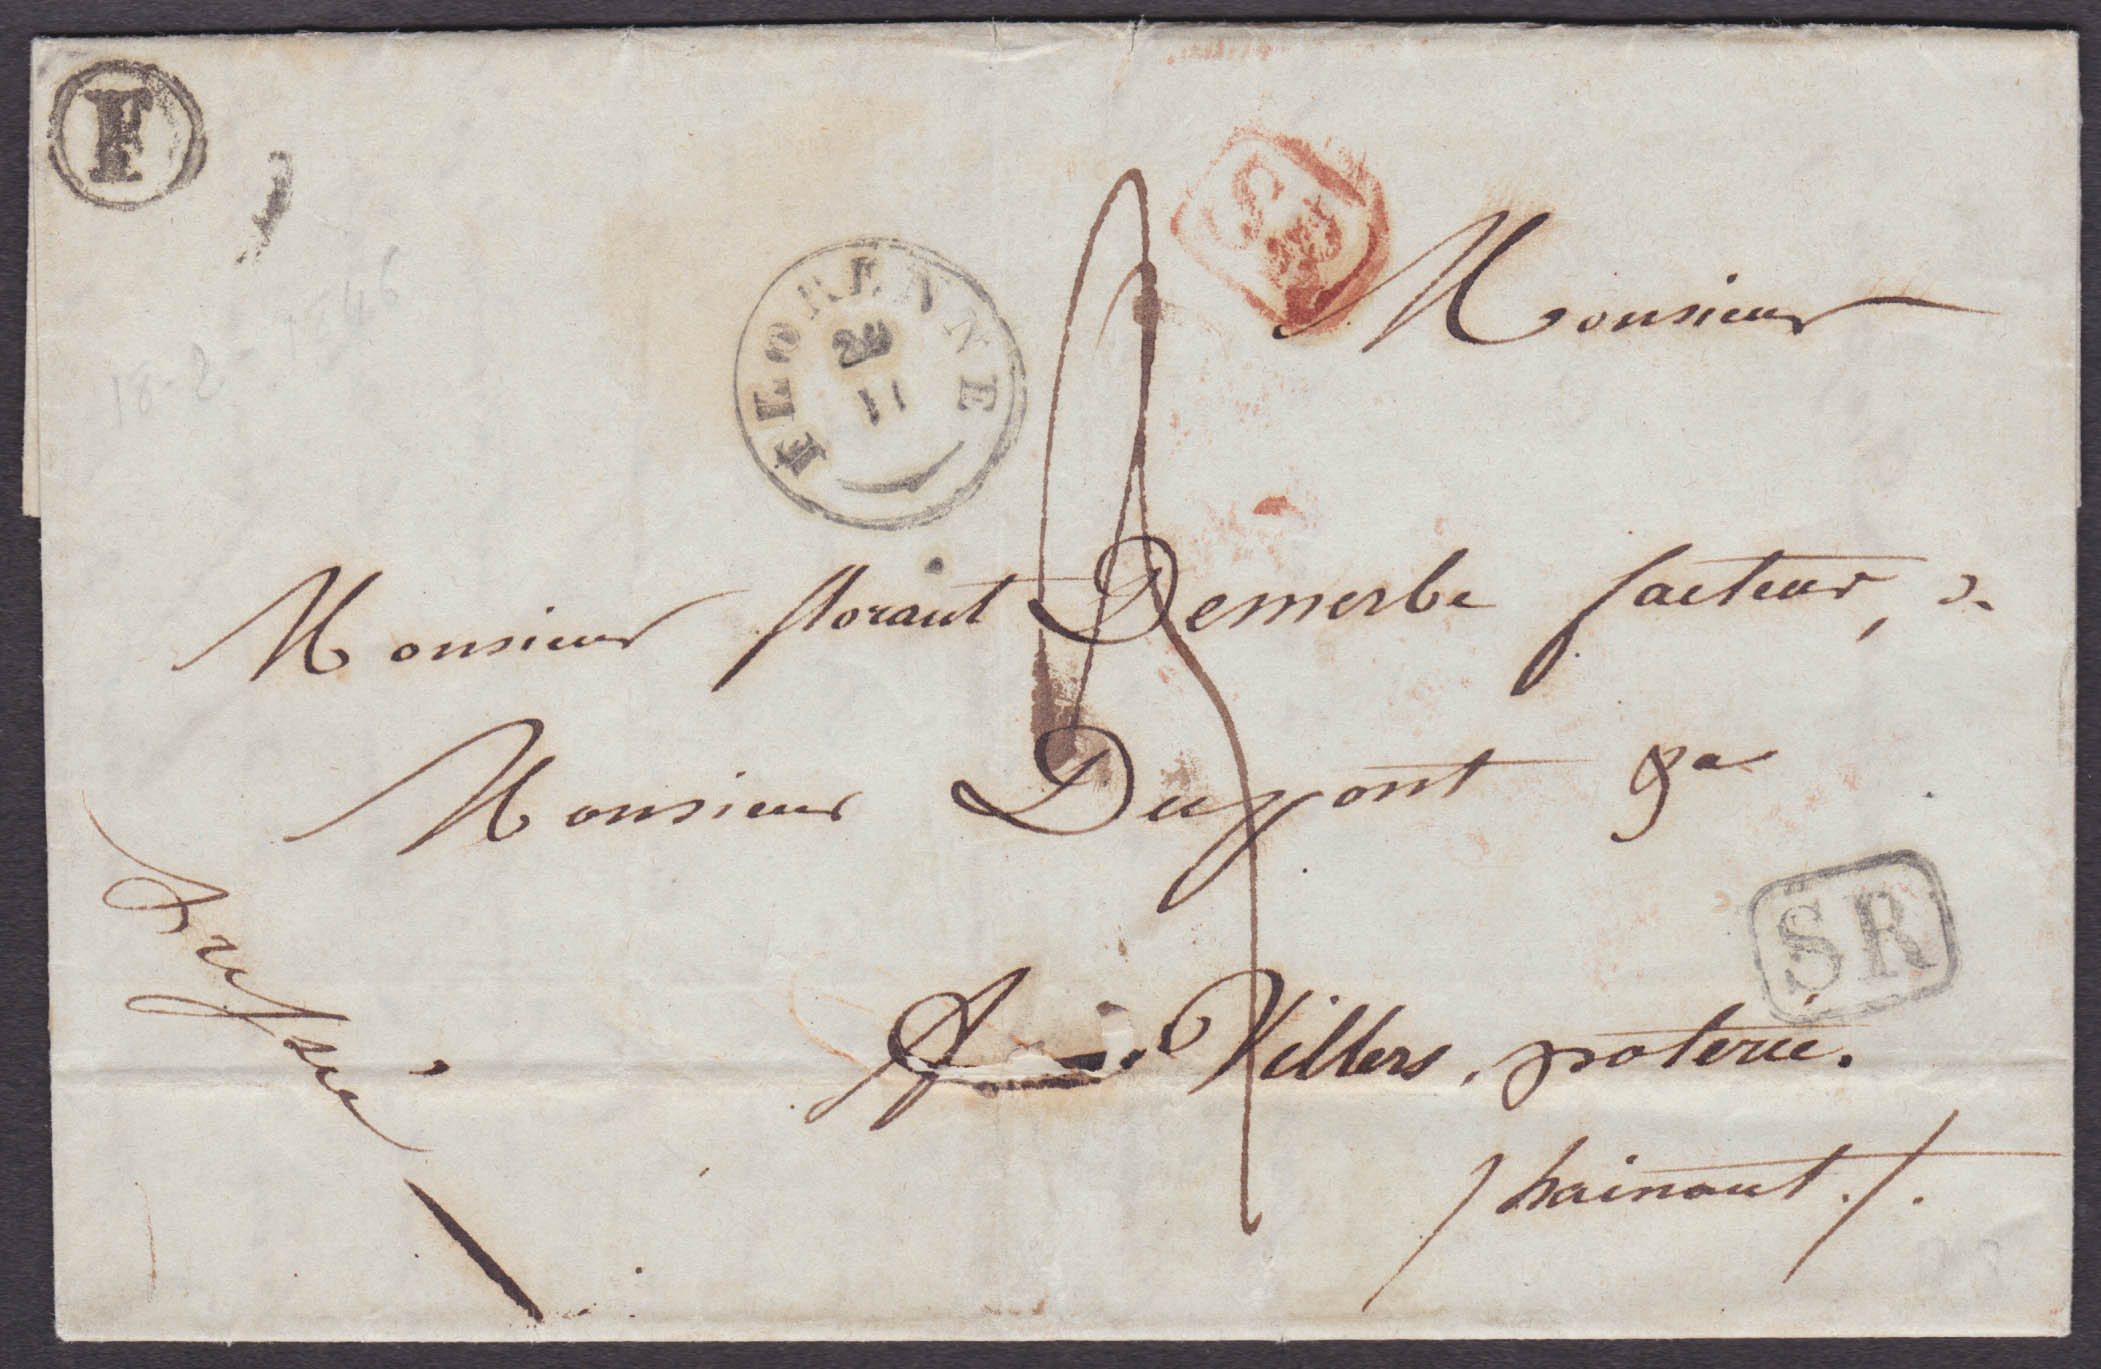 F
18-2-1846
FLORENNE
20
11
SR
Monsieur
Monsieur florant Demerbe facteur, 
Monsieur Dupont
SR
A Villers, poterie.
/ hainaut ./.